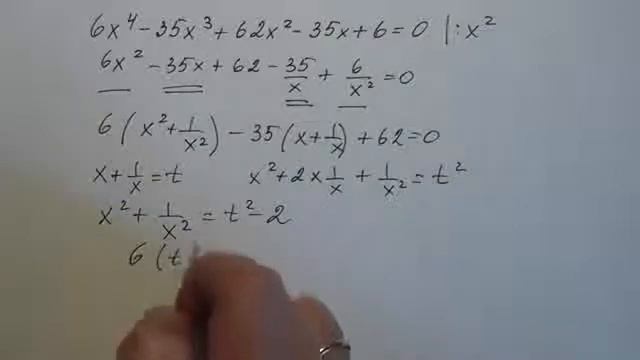 6x⁴ - 35x³ + 62x² - 35x + 6 = 0 | : x²
6x² - 35x + 62 - 35/x + 6/x² = 0
6(x² + 1/x²) - 35(x + 1/x) + 62 = 0
x + 1/x = t x² + 2x 1/x + 1/x² = t²
x² + 1/x² = t² - 2
6 (t